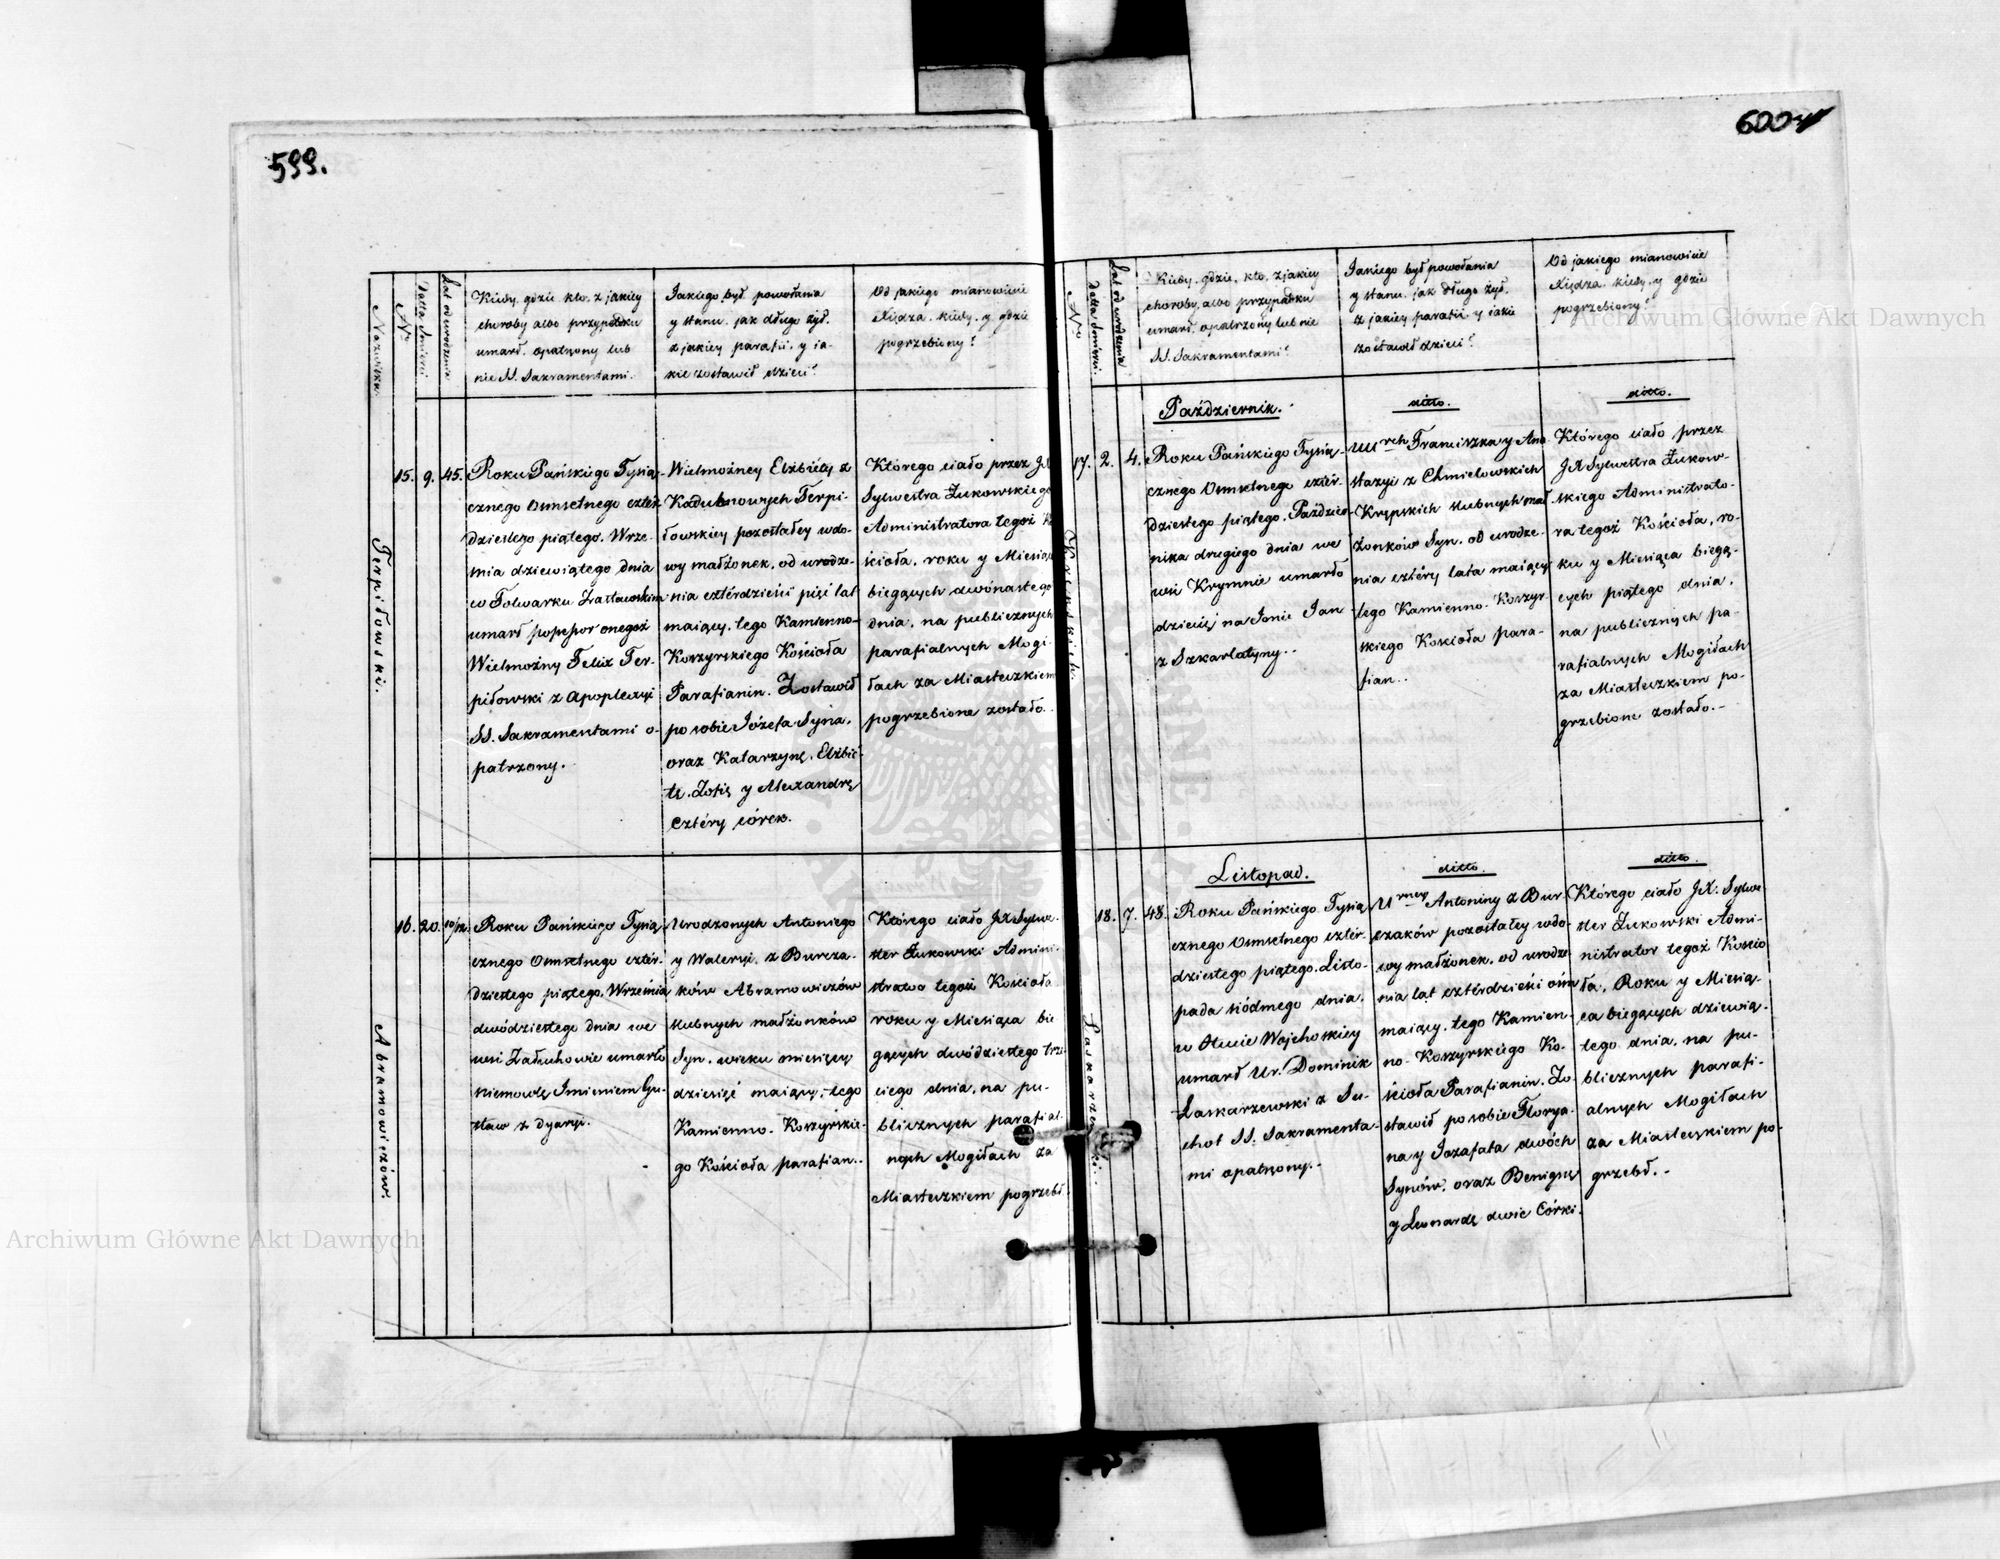 599.
Nazwisko.
Nro
Datta śmierci
Lat od urodzenia
Kiedy, gdzie, kto, z jakiey
choroby albo przypadku
umarł, opatrzony lub
nie SS. Sakramentami.
Jakiego był powołania
y stanu, jak długo żył,
z jakiey parafii, y ja-
kie zostawił dzieci?
Od jakiego mianowicie
Xiędza, kiedy, y gdzie
pogrzebiony?
Terpiłowski.
15.
9.
45.
Roku Pańskiego Tysią-
cznego Osmsetnego czter-
dziestego piątego, Wrze-
śnia dziewiątego dnia
w Folwarku
umarł
Wielmożny Felix Ter-
piłowski z apoplexyi
SS. Sakramentami o-
patrzony.
Wielmożney Elżbiety z
Kadłubnowych Terpi-
łowskiey pozostałey wdo-
wy małżonek, od urodze-
nia czterdzieści pięć lat
maiący, tego Kamienno-
Koszyrskiego Kościoła
Parafianin. Zostawił
po sobie Józefa Syna,
oraz Katarzynę, Elżbie-
tę, Zofię y Alexandrę
cztéry córek.
Którego ciało przez JX
Sylwestra Żukowskiego
Administratora tegoż Ko
ścioła, roku y Miesiąca
biegących dwónastego
dnia, na publicznych
parafialnych Mogi-
łach za Miasteczkiem
pogrzebione zostało.
Abramowiczów.
16.
20.
10/12.
Roku Pańskiego Tysią
cznego Osmsetnego czter-
dziestego piątego, Września
dwódziestego dnia we
wsi Załuhowie umarło
niemowlę Imieniem Gu-
staw z dyaryi.
Urodzonych Antoniego
y Waleryi, z Burcza-
ków Abramowiczów
slubnych małżonków
Syn, wieku miesięcy
dziesięć maiący, tego
Kamienno-Koszyrskie-
go Kościoła parafian..
Którego ciało JX Sylwe-
ster Żukowski Admini-
strator tegoż Kościoła
roku y Miesiąca bie
gących dwódziestego trze-
ciego dnia, na pu-
blicznych parafial-
nych Mogiłach za
Miasteczkiem pogrzebł.
600
Nro
Datta śmierci.
Lat od urodzenia
Kiedy, gdzie, kto, z jakiey
choroby, albo przypadku
umarł, opatrzony lub nie
SS. Sakramentami?
Jakiego był powołania
y stanu, jak długo żył,
z jakiey parafii y jakie
zostawił dzieci?
Od jakiego mianowicie
Xiędza, kiedy, y gdzie
pogrzebiony?
Październik.
ditto.
ditto.
17.
2.
4.
Roku Pańskiego Tysią-
cznego Osmsetnego czter-
dziestego piątego, Paździer-
nika drugiego dnia we
wsi Krymnie umarło
dziecię na Imie Jan
z Szkarlatyny..
Urch Franciszka y Ana
stazyi z Chmielowskich
Krępskich slubnych mał-
żonków Syn, od urodze-
nia cztéry lata maiący
tego Kamienno-Koszyr-
skiego Kościoła para-
fian..
Którego ciało przez
JX Sylwestra Żukow-
skiego Administrato-
ra tegoż Kościoła, ro-
ku y Miesiąca biegą-
cych piątego dnia,
na publicznych pa-
rafialnych Mogiłach
za Miasteczkiem po-
grzebione zostało.-
Listopad.
ditto.
ditto.
18.
7.
48.
Roku Pańskiego Tysią
cznego Osmsetnego czter-
dziestego piątego, Listo-
pada siódmego dnia,
w Wojehoskiey
umarł Ur. Dominik
Łaskarzewski z Su-
chot SS. Sakramenta-
mi opatrzony.-
Urney Antoniny z Bur
czaków pozostałey wdo-
wy małżonek, od urodze
nia lat czterdzieści ośm
maiący, tego Kamien-
no-Koszyrskiego Ko-
ścioła Parafianin. Zo
stawił po sobie Florya-
na y Jozafata dwóch
Synów, oraz Benignę
y Leonardę dwie Córki.
Którego ciało JX. Sylwe-
ster Żukowski Admi-
nistrator tegoż Kościo
ła, Roku y Miesią-
ca biegących dziewią-
tego dnia, na pu-
blicznych parafi-
alnych Mogiłach
za Miasteczkiem po-
grzebł.-
Archiwum Główne Akt Dawnych
Archiwum Główne Akt Dawnych